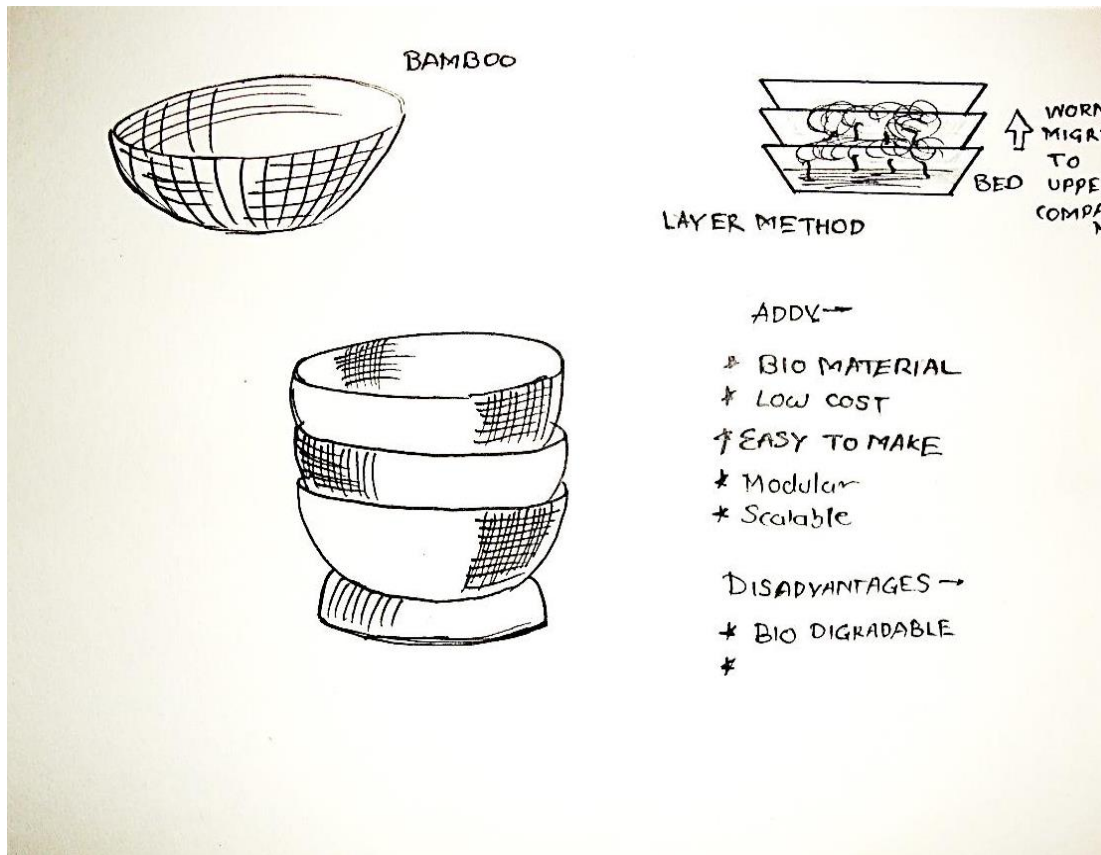 BAMBOO
BED
LAYER METHOD
TO
ADDV→
* BIO MATERIAL
* LOW COST
* EASY TO MAKE
* Modular
* Scalable
DISADVANTAGES →
* BIO DIGRADABLE
*